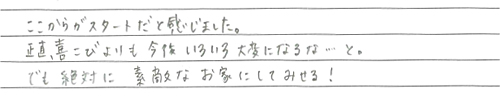 ここからがスタートだと感じました。
正直、喜こびよりも今後いろいろ大変になるな…と。
でも絶対に素敵なお家にしてみせる!